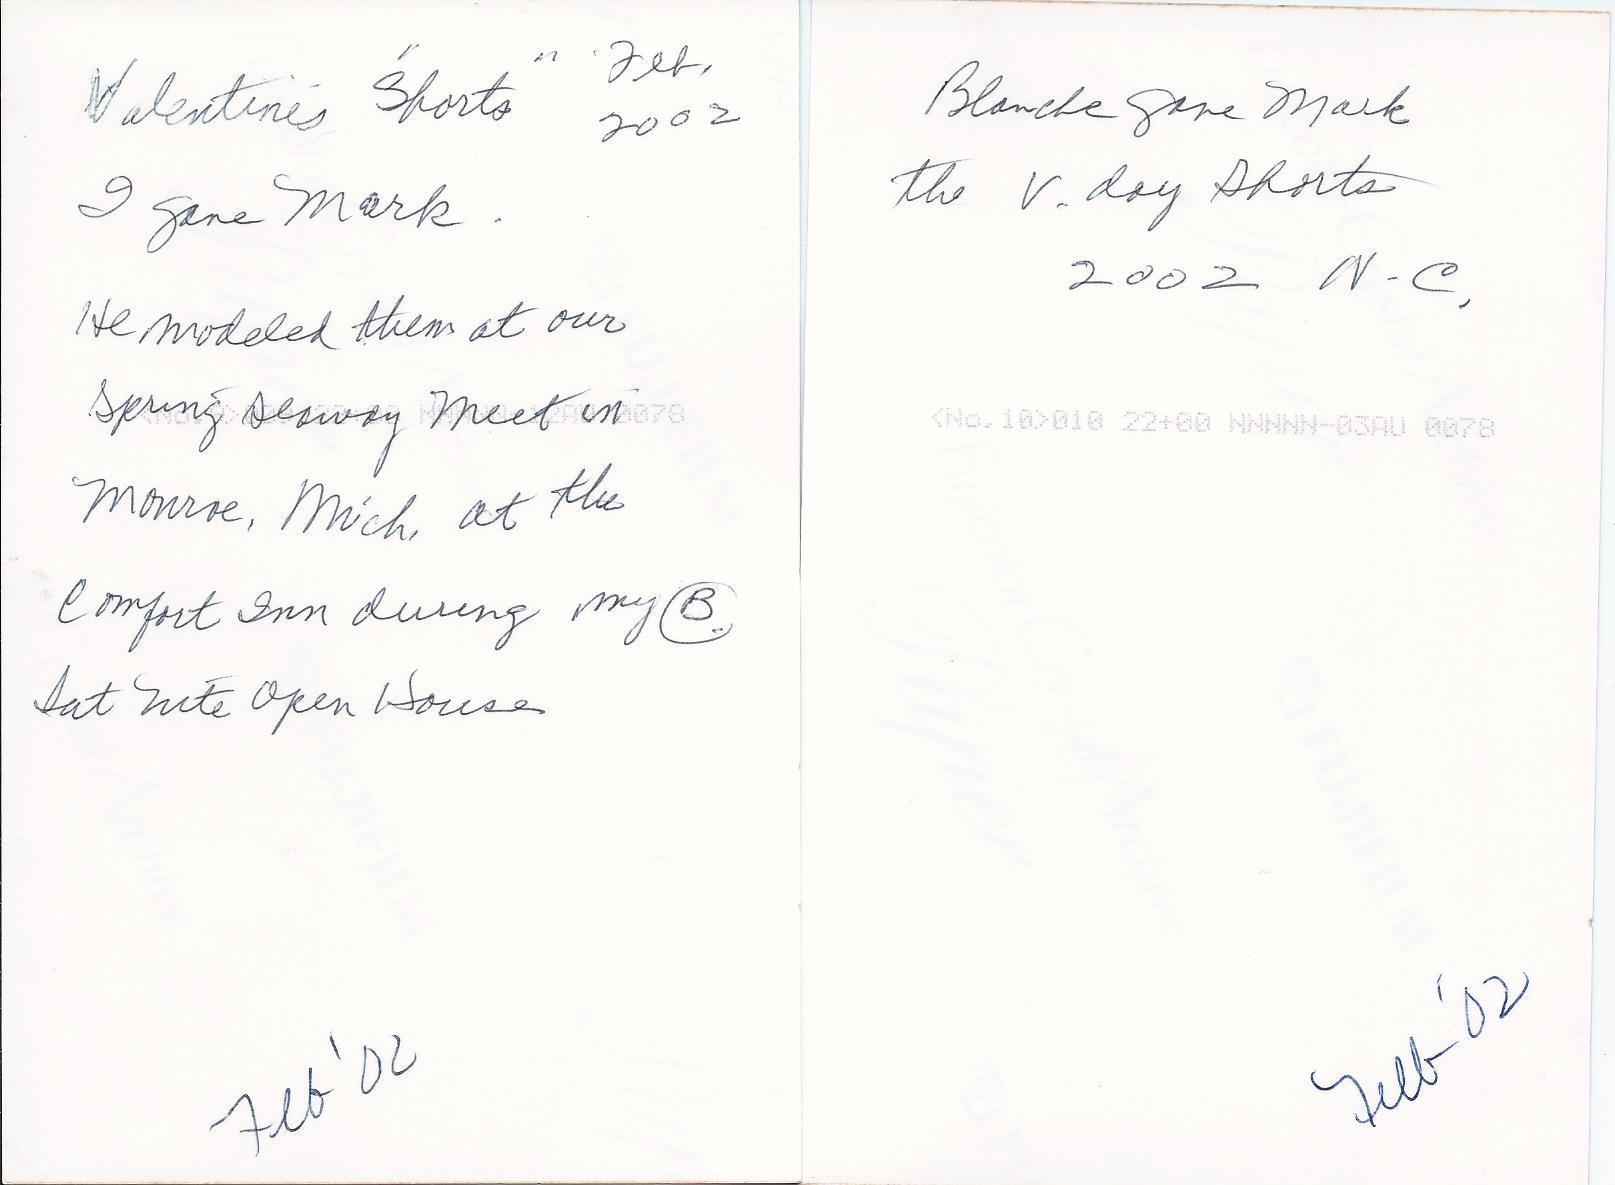 Valentine's "Shorts" Feb,
2002
I gave Mark.
He modeled them at our
Spring Seaway Meet in
Monroe, Mich, at the
Comfort Inn during my B.
Sat Nite Open House
Feb '02
Blanche gave Mark
the V. day Shorts
2002 N-C,
<No.10>010 22+00 NNNNN-03AU 0078
Feb '02
FUJIFILM
Fujicolor Crystal Archive
Paper
FUJIFILM